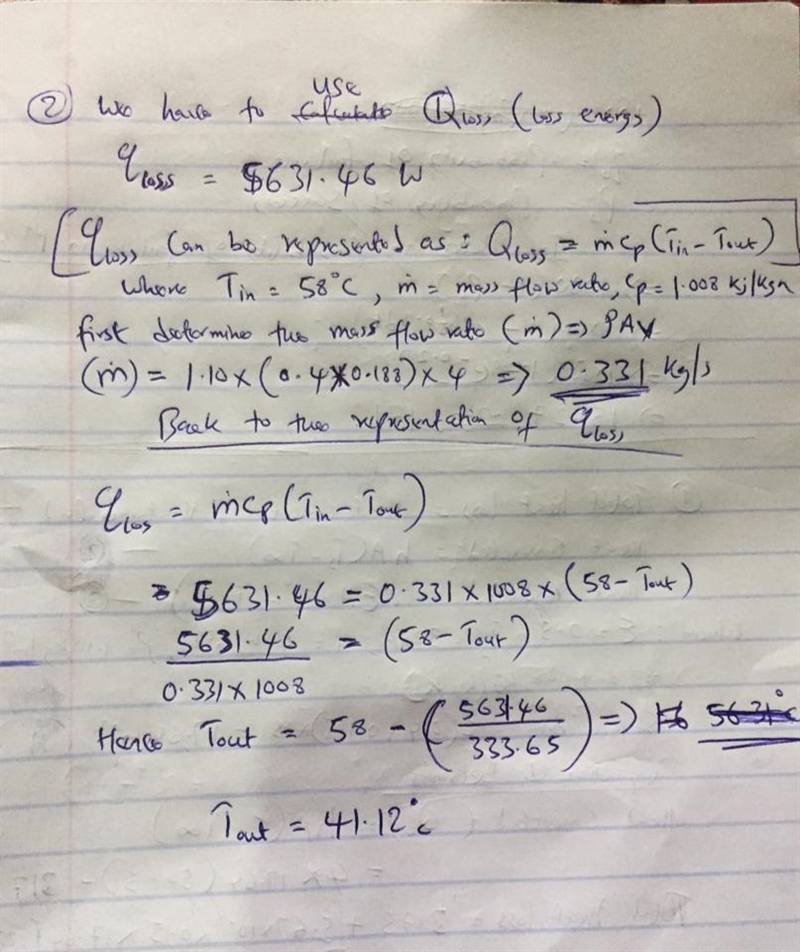 ② We have to use Qloss (loss energy)
qloss = 5631.46 W
[qloss can be represented as: Qloss = ṁcp(Tin - Tout)]
Where Tin = 58°C, ṁ = mass flow rate, Cp = 1.008 kj/kgn
first determine the mass flow rate (ṁ) => ρAV
(ṁ) = 1.10 x (0.4x0.188) x 4 => 0.331 kg/s
Back to the representation of qloss
qloss = ṁcp(Tin - Tout)
5631.46 = 0.331 x 1008 x (58 - Tout)
5631.46 = (58 - Tout)
0.331 x 1008
Hence Tout = 58 - (5631.46 / 333.65) =>
Tout = 41.12°c